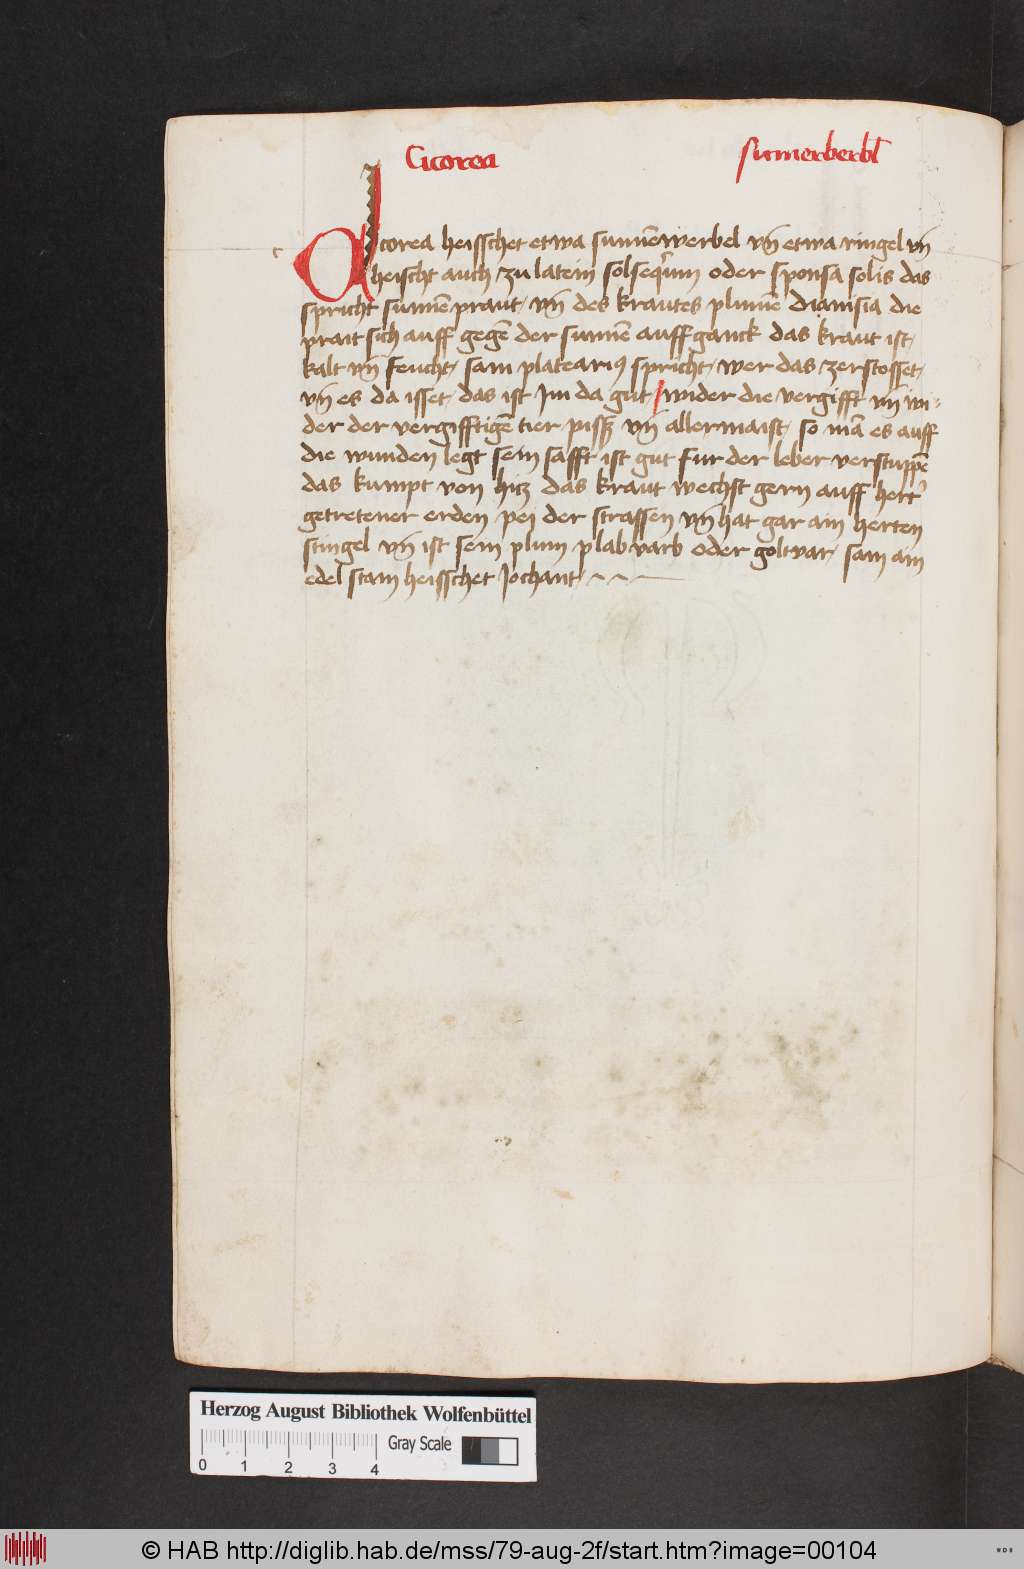 Cicorea sumerberbl
Cicorea heisschet etwa sunnēwerbel vn̄ etwa ringel vn̄
heischt auch zu latein solseq̄ium oder sponsa solis das
spricht sunnē praut vn̄ des krautes plumē dianisia die
prait sich auff gegē der sunnē auffganck das kraut ist
kalt vn̄ feucht sam platearius spricht wer das zerstosset
vn̄ es da isset das ist im da gut wider die vergifft vn̄ wi-
der der vergifftigē tier pissz vn̄ allermaist so mā es auff
die wunden legt sein safft ist gut fur der leber verstuppē
das kumpt von hicz das kraut wechst gern auff hert'
getretener erden pei der strassen vn̄ hat gar ain herten
stingel vn̄ ist sein plum plab varb oder goltvar sam ain
edel stain heisschet Jochant
Herzog August Bibliothek Wolfenbüttel
Gray Scale
0 1 2 3 4
© HAB http://diglib.hab.de/mss/79-aug-2f/start.htm?image=00104